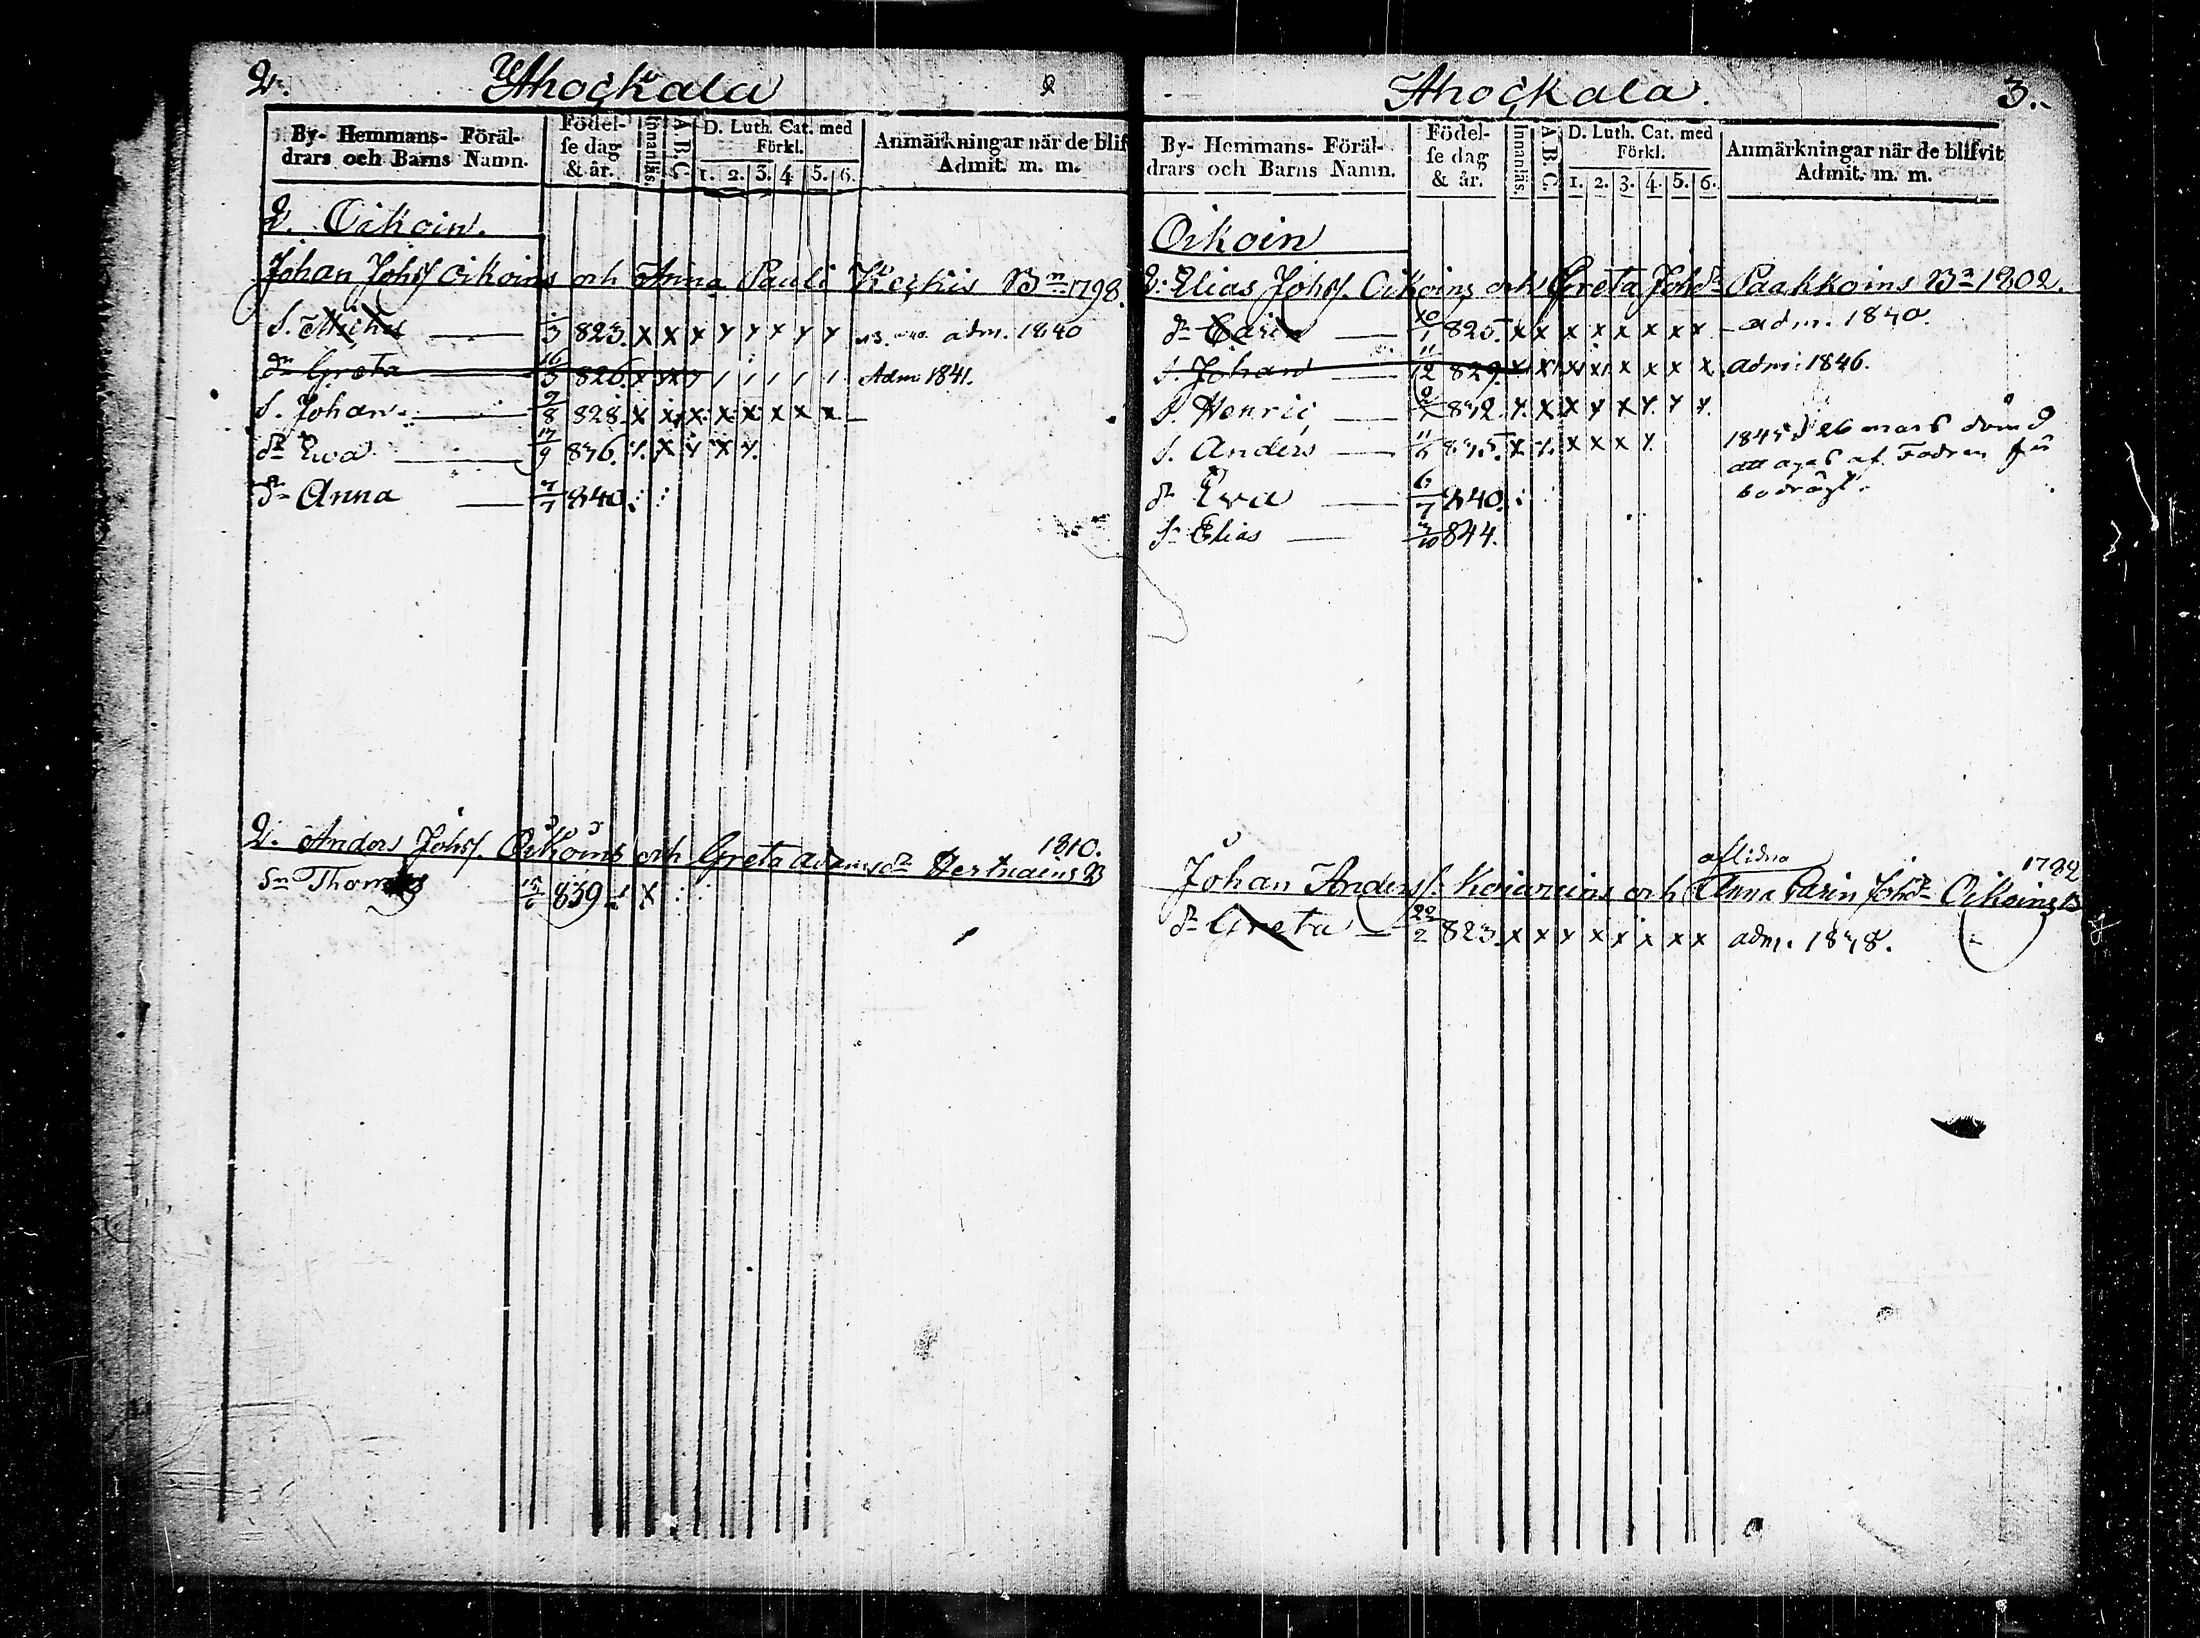 2. Ahoçkala 2
By- Hemmans- Föräl-
drars och Barns Namn.
Födel-
se dag
& år.
Innanläs.
A B C
D. Luth. Cat. med
Förkl.
1. 2. 3. 4 5. 6.
Anmärkningar när de blif
Admit. m. m.
2. Oikoin.
Johan Johsf Oikoins och Anna Pauli B:n 1798.
S. Michel 1/3 823. x x x y y x y y adm. 1840
dr Greta 16/3 826. Adm: 1841.
S. Johan 9/8 828. x x x x x x x x
dr Ewa 17/9 836. x x y x y.
dr Anna 7/7 840. : :
2. Anders Johsf. Oikoins och Greta Adamsdr 1810.
Sn Thomas 15/6 839 x : :
Ahoçkala. 3.
By- Hemmans- Föräl-
drars och Barns Namn.
Födel-
se dag
& år.
Innanläs.
A B C
D. Luth. Cat. med
Förkl.
1. 2. 3. 4. 5. 6.
Anmärkningar när de blifvit
Admit. m. m.
Oikoin
2. Elias Johsf. Oikoins och Greta Johdr Paakkoins B:n 1802.
dr Carin 10/1 825 x x x x x x x x adm. 1840.
S. Johan 11/12 829. x x x x x x x x adm: 1846.
S. Henric 832 y. x x y x y. y y.
S. Anders 835. x y. x x x y. 1845 d 26 mars
att af Fadren
dr Ewa 6/7 840. :
S. Elias 3/10 844.
aflidna 1792
Johan Andersf. och Anna Carin Johdr Oikoins B
dr Greta 22/2 823. x x y x x x x x adm. 1838.